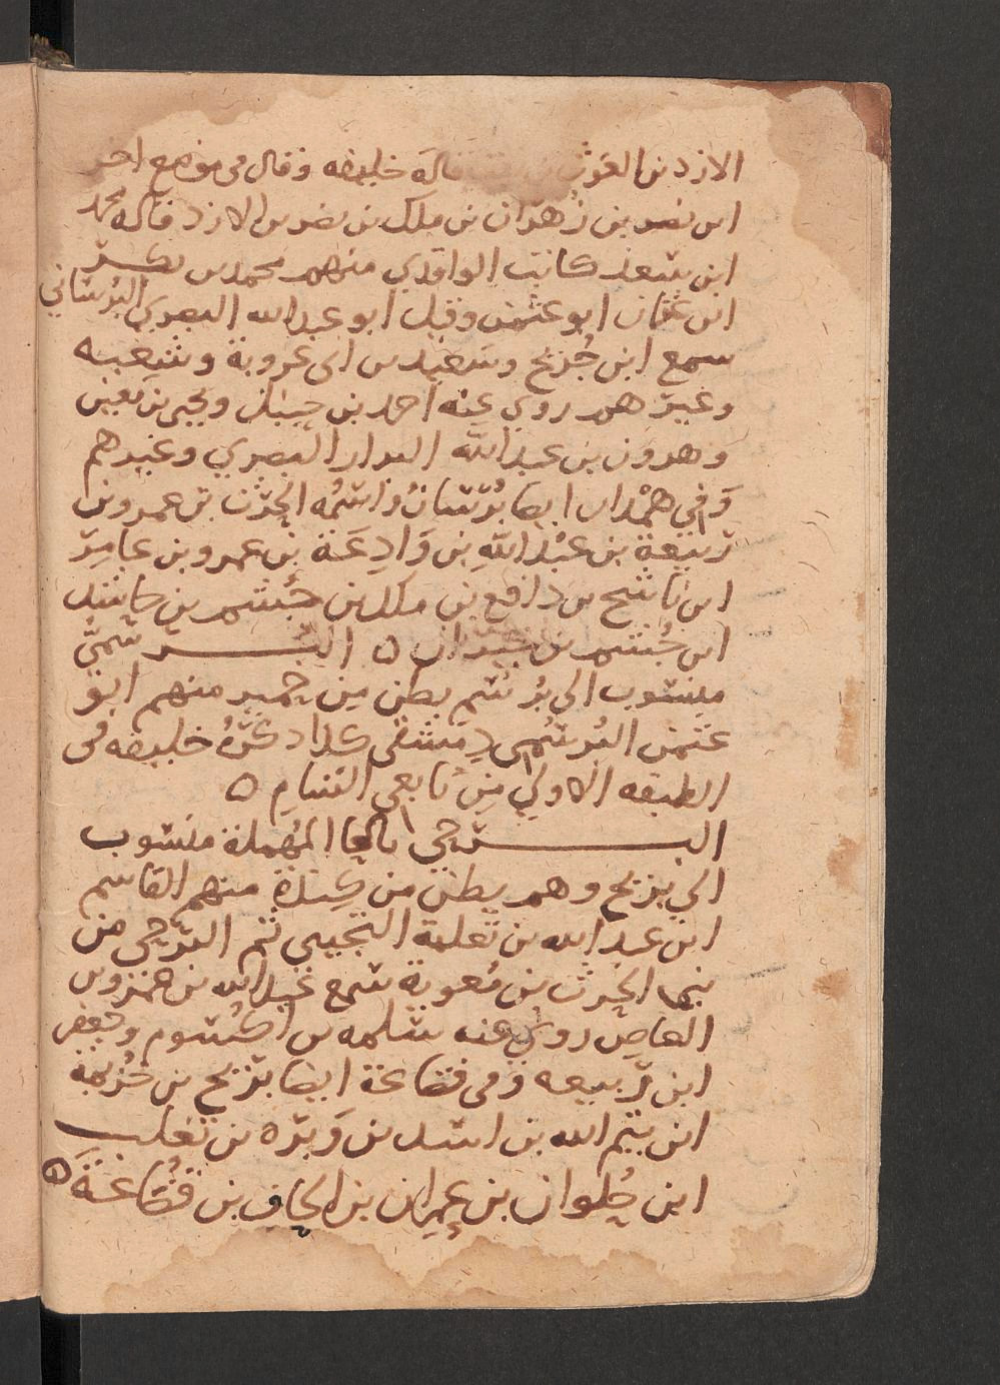 الازد بن الغوث قاله خليفه وقال فى موضع اخر
ابن نصر بن زُهرَان بن ملك بن نصر بن الازد قاله محمد
ابن سعد كاتب الواقدي منهم محمد بن بكر
ابن عثمان ابو عثمن وقيل ابو عبد الله البصري البُرسَاني
سمع ابن جُريج وسَعيد بن ابى عَروبة وشعبه
وغيرهم روي عنه احمد بن حنبل ويحيى بن معين
وهرون بن عبد الله البزار البصري وغيرهم
وَفي همْدان ايضا بُرْسَانُ واسْمُه الحرث بن عمرو بن
ربيعة بن عبْد اللهِ بن وَادِعَة بن عمرو بن عامِر
ابن ناشح بن دافع بن ملك بن جُشم بن حاشد
ابن جُشم بن خيران ه البُرسميّ
منسوب الي بُرسُم بطن مِن حمير منهم ابو
عثمن البُرسُمي دِمشقي كذا ذكرَهُ خليفه فى
الطبقه الاولي مِن تابعى الشام ه
البرحي بالحا المهملة منسوب
الي بريح وهم بطن من كِندَة منهم القاسم
ابن عبد الله بن ثعلبة التجيبي ثم البرَحي من
بني الحرث بن مُعوية سَمع عبد الله بن عمرو بن
العاصِ روي عنه سلمه بن اكسُوم وجعفر
ابن ربيعه وفى قضاعة ايضا بَريح بن خُزيمة
ابن تيم الله بن اسد بن وَبرَه بن تغلب
ابن حُلوان بن عِمران بن الحافِ بن قُضَاعَة ه